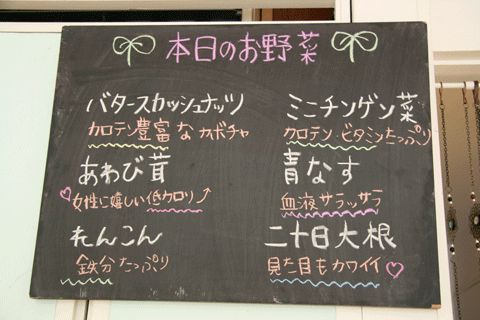 本日のお野菜
バタースカッシュナッツ
カロテン豊富なカボチャ
あわび茸
女性に嬉しい低カロリー
れんこん
鉄分たっぷり
ミニチンゲン菜
カロテン、ビタミンたっぷり
青なす
血液サラッサラ
二十日大根
見た目もカワイイ